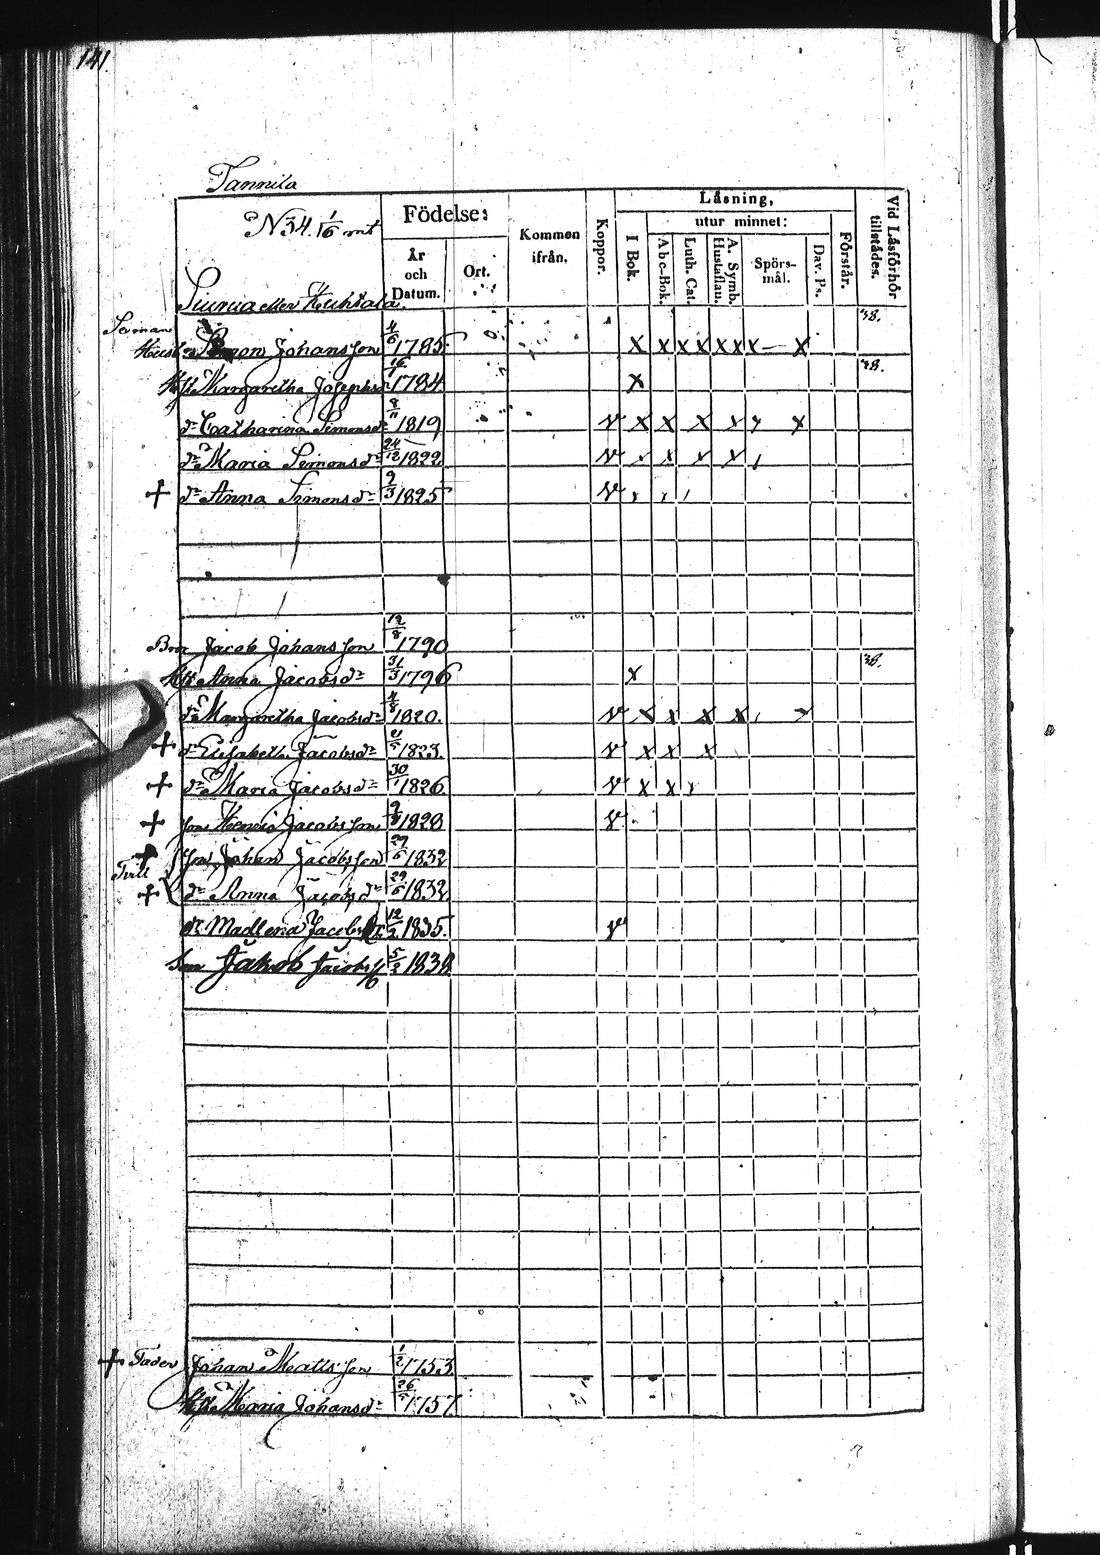 141.
Tannila
N 34. 1/6 mt
Födelse:
År och Datum.
Ort.
Kommen ifrån.
Koppor.
Läsning,
I Bok.
utur minnet:
Abc-Bok.
Luth. Cat.
A. Symb. Hustaflan.
Spörs-mål.
Dav. Ps.
Förstår.
Vid Läsförhör tillstädes.
Siurua eller Kuhtala
Simon Johansson 4/6 1785 X X X X X X X — X 38.
Hu Margaretha Josephsdr 1784 X 38.
dr Catharina Simonsdr 8/11 1819 v X X X X X
dr Maria Simonsdr 24/12 1822 v
+ dr Anna Simonsdr 2/3 1825 v
Bror Jacob Johansson 12/8 1790
Hu Anna Jacobsdr 31/3 1796 X 38.
dr Margaretha Jacobsdr 4/8 1820. v X X X X
+ dr Elisabetha Jacobsdr 1823. v X X X
+ dr Maria Jacobsdr 30/1 1826 v X X
+ son Henric Jacobsson 1828 v
Tvill
+ son Johan Jacobsson 29/6 1832
+ dr Anna Jacobsdr 29/6 1832
dr Madlena Jacobsdr 12/2 1835. v
son Jakob Jacobss 5/2 1838
+ Fader Johan Mattsson 1/2 1753
Hu Maria Johansdr 1757